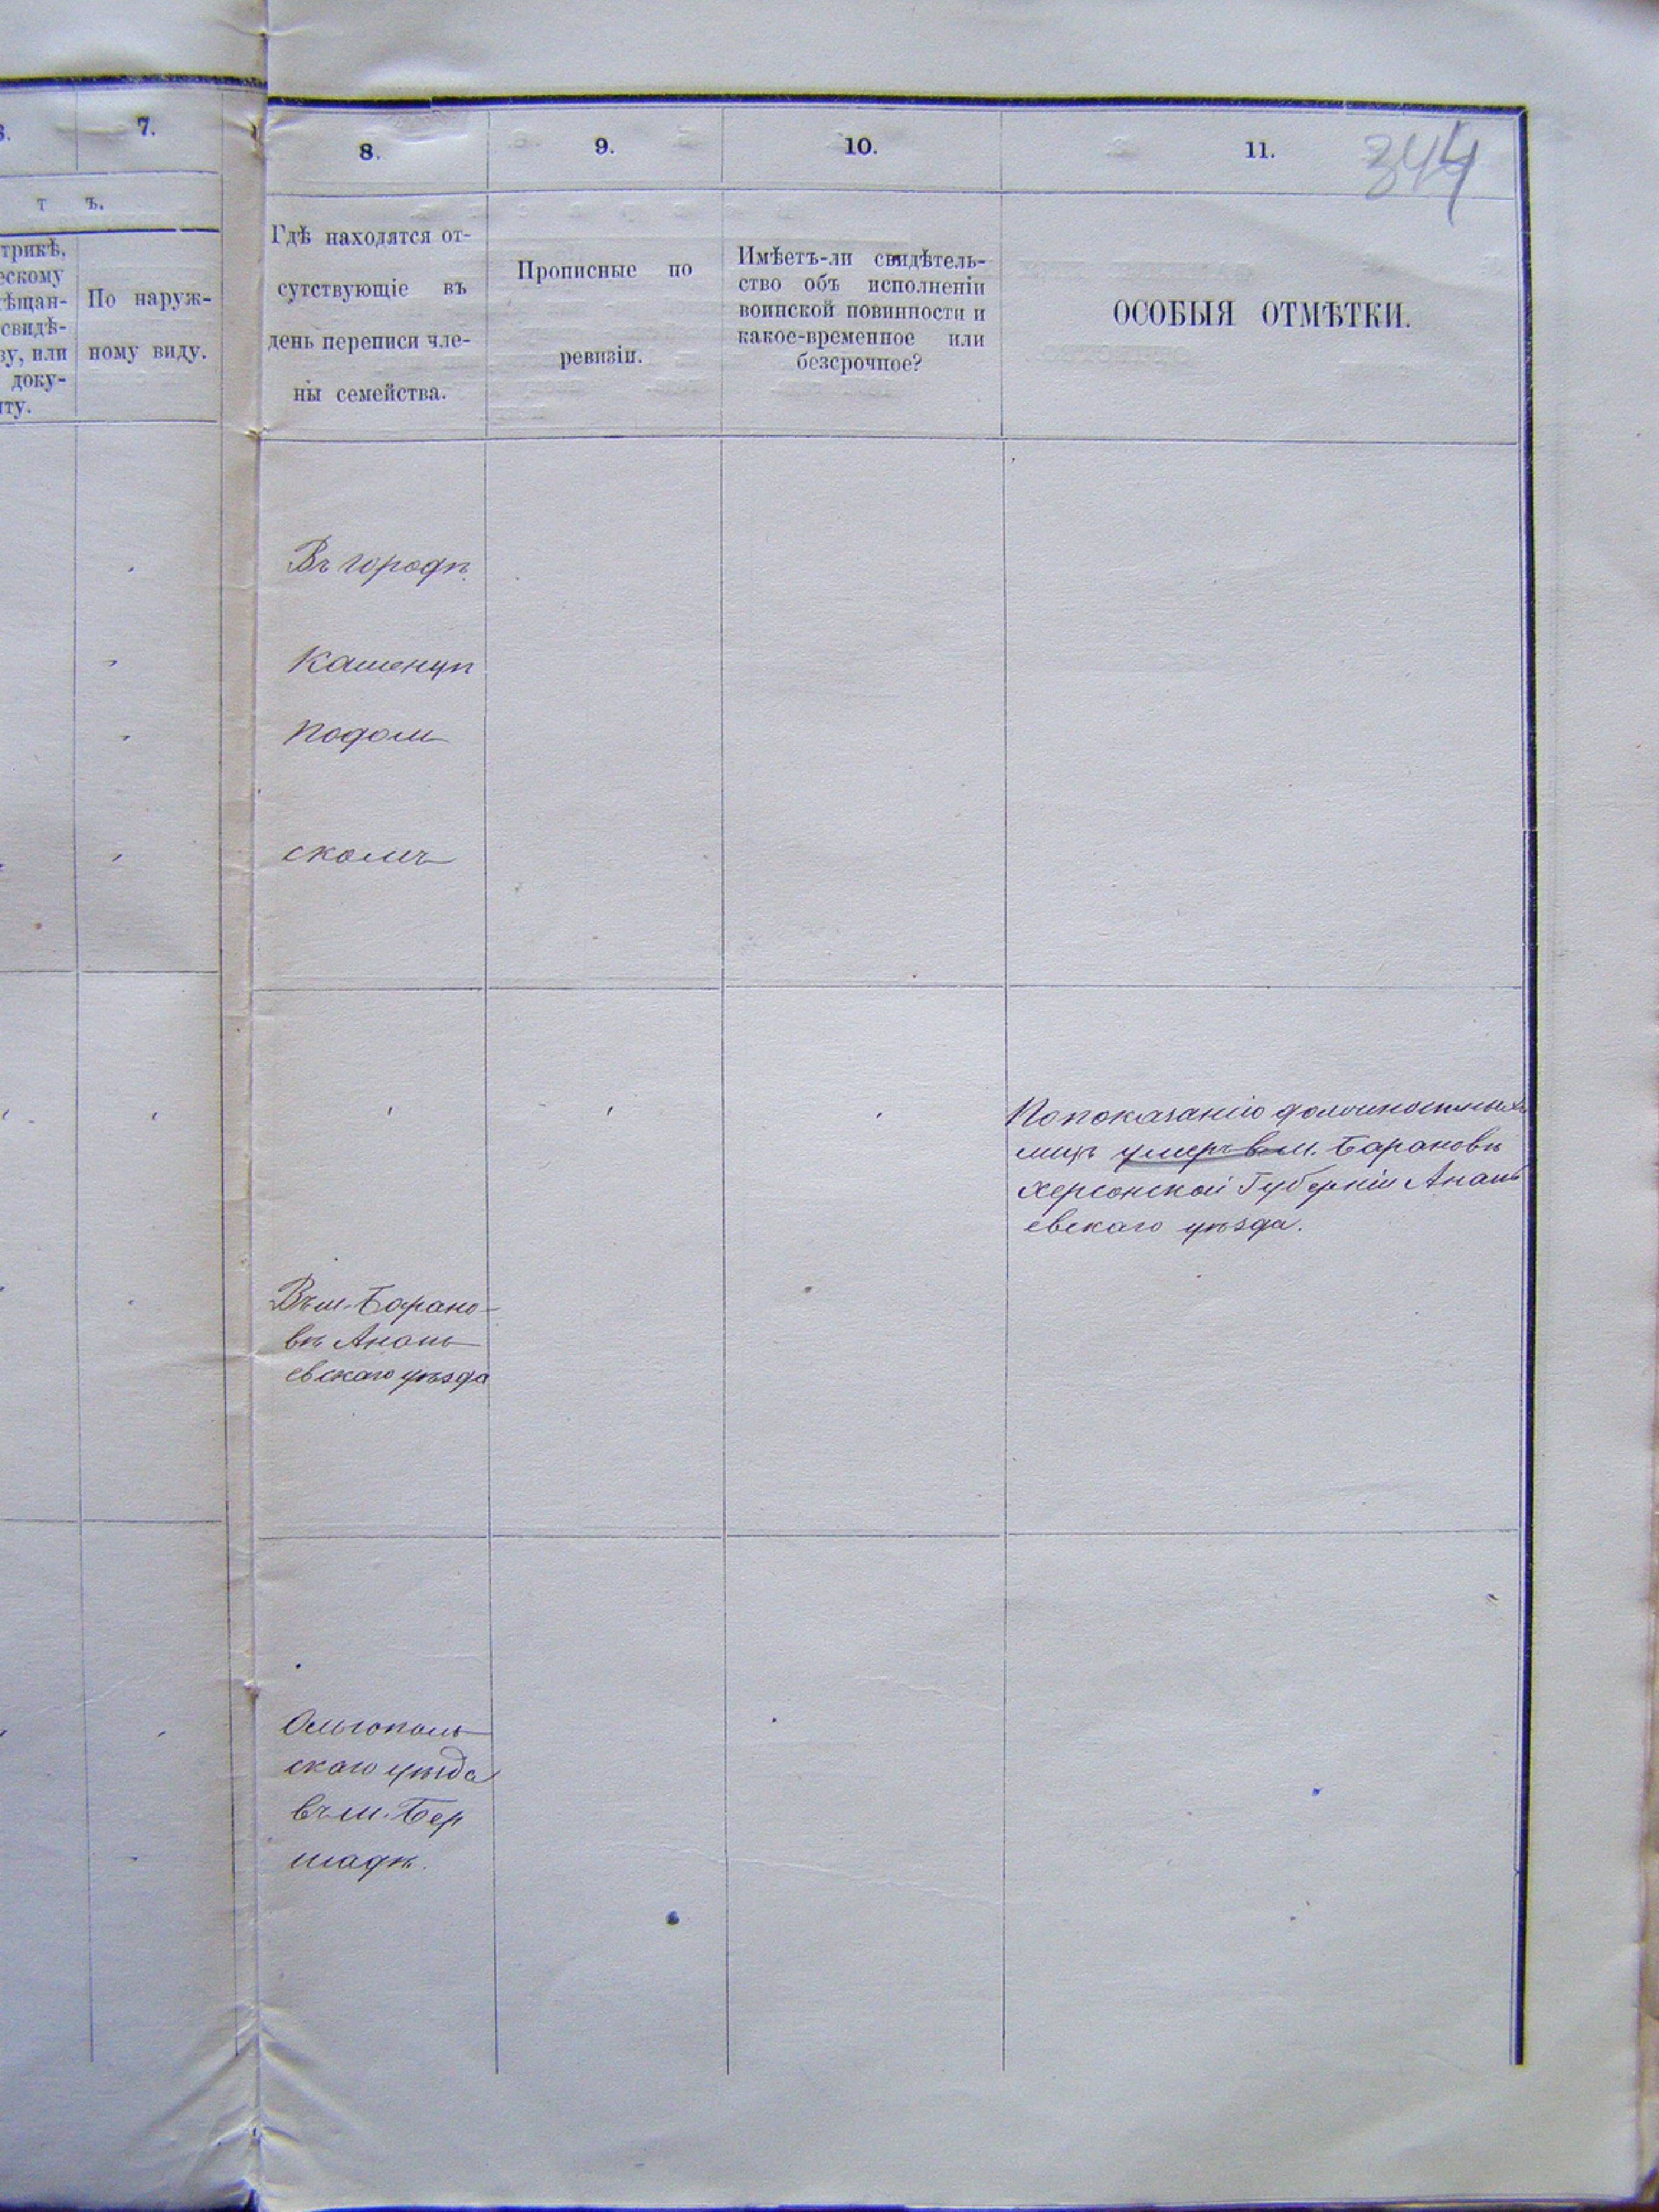 7.
8.
9.
10.
11.
344
т ъ.
трикѣ,
ескому
ѣщан-
свидѣ-
ву, или
доку-
нту.
По наруж-
ному виду.
Гдѣ находятся от-
сутствующіе въ
день переписи чле-
ны семейства.
Прописные по
ревизіи.
Имѣетъ-ли свидѣтель-
ство объ исполненіи
воинской повинности и
какое-временное или
безсрочное?
ОСОБЫЯ ОТМѢТКИ.
Въ городѣ
Каменцѣ
Подоль
скомъ
По показанію должностныхъ
лицъ умеръ в м. Барановѣ
Херсонской Губерніи Анань
евскаго уѣзда.
Въ м. Барано-
вѣ Анань
евскаго уѣзда
Ольгополь
скаго уѣзда
въ м. Бер
шадѣ.